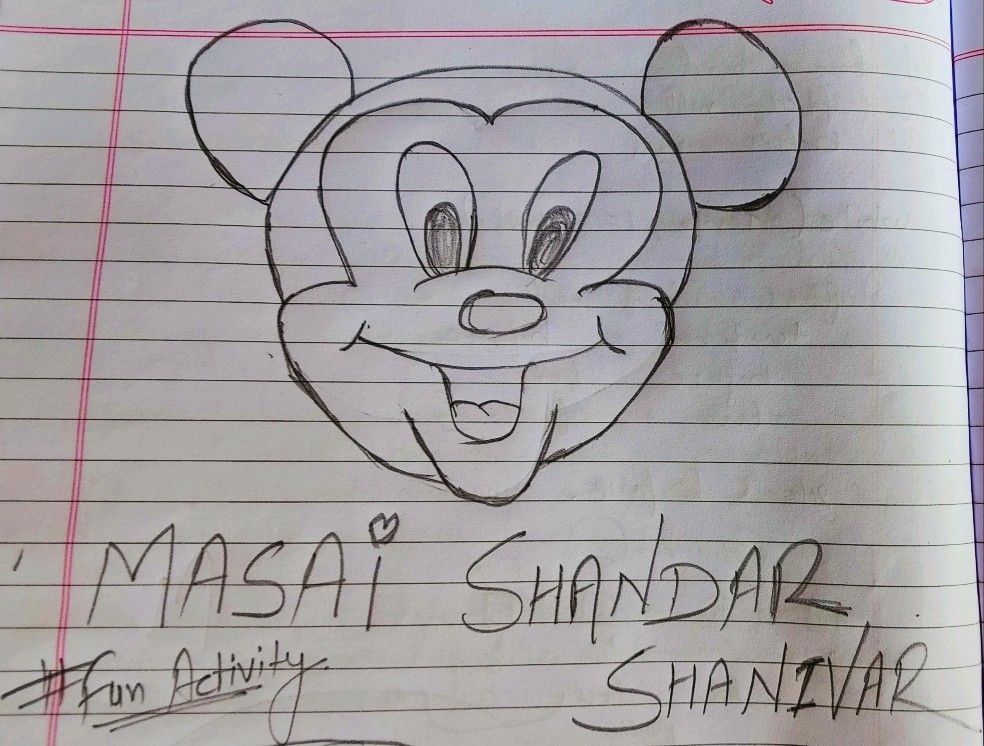 MASAi SHANDAR
#Fun Activity SHANIVAR